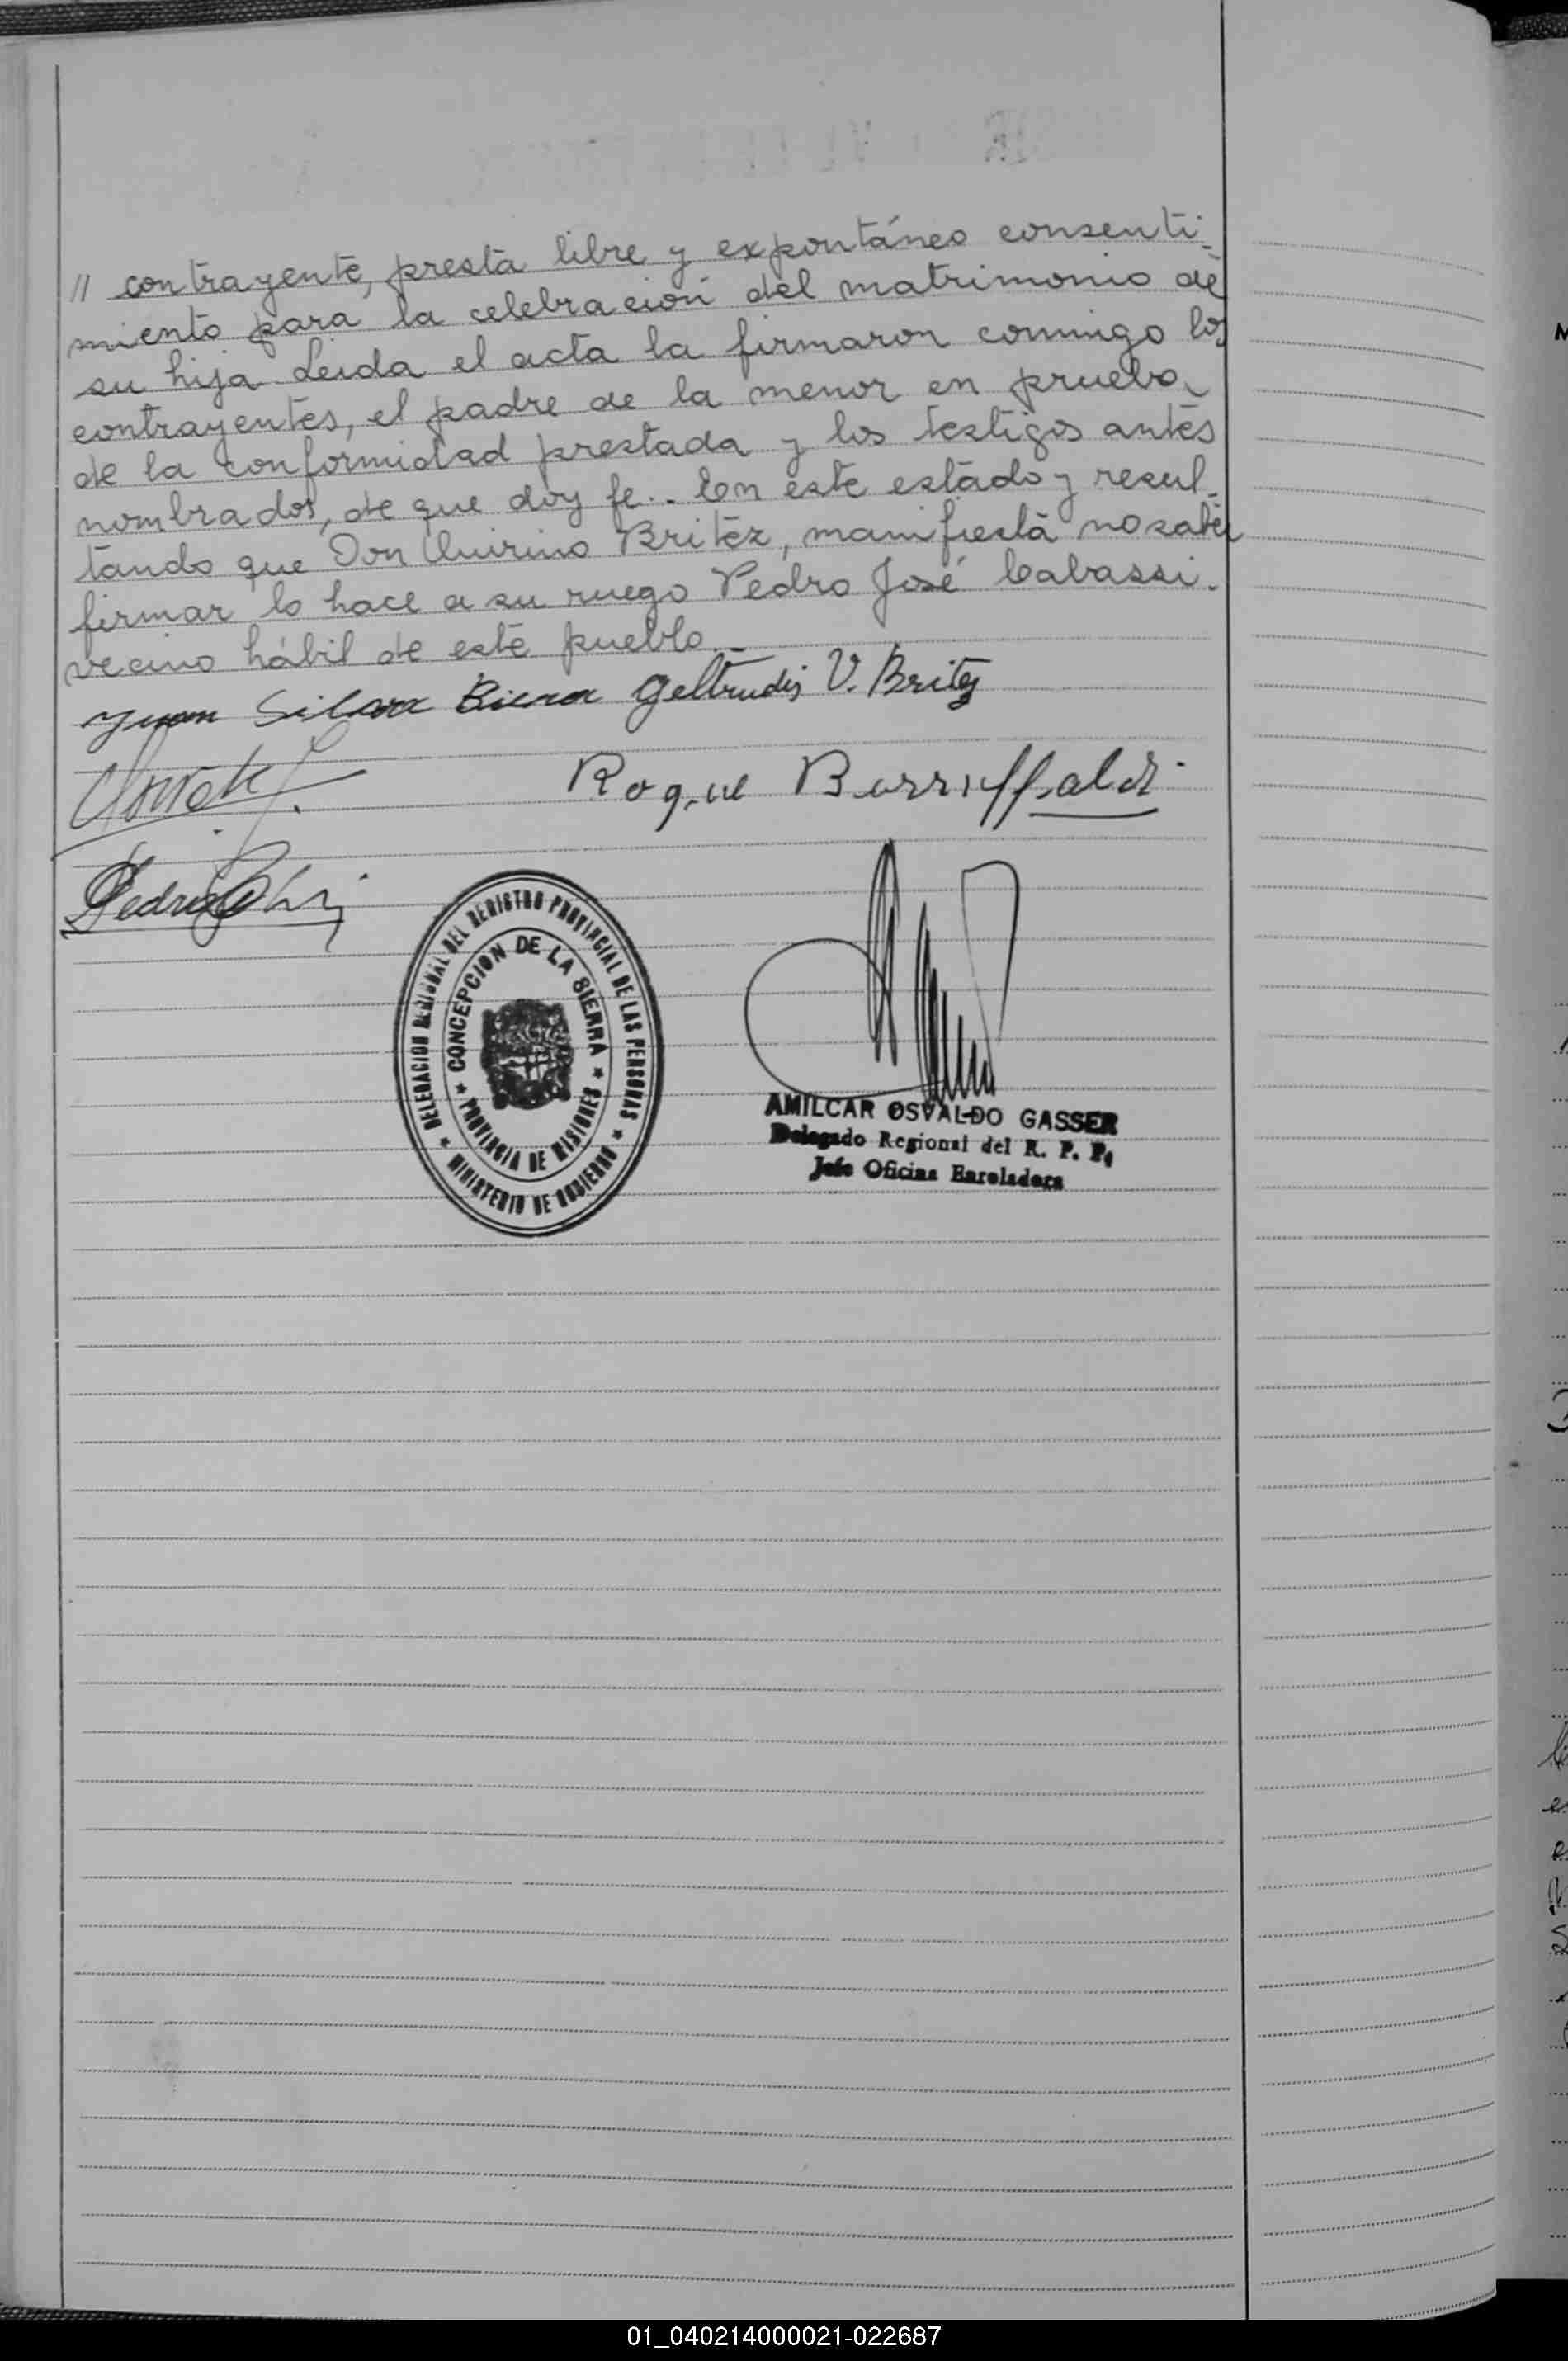 // contrayente, presta libre y expontáneo consenti-
miento para la celebración del matrimonio de
su hija. Leida el acta la firmaron conmigo los
contrayentes, el padre de la menor en prueba
de la conformidad prestada y los testigos antes
nombrados, de que doy fe.. En este estado y resul-
tando que Don Quirino Britez, manifiesta no saber
firmar lo hace a su ruego Pedro José Cabassi.
vecino hábil de este pueblo.-
Juan Silva Geltrudis V. Britez
Roque Barriffaldi
Pedro
DELEGACION REGIONAL DEL REGISTRO PROVINCIAL DE LAS PERSONAS
★ MINISTERIO DE GOBIERNO ★
CONCEPCION DE LA SIERRA
★ PROVINCIA DE MISIONES ★
AMILCAR OSVALDO GASSER
Delegado Regional del R. P. P.
Jefe Oficina Enroladora
01_040214000021-022687